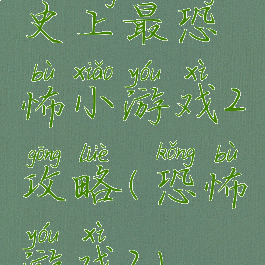 史上最恐
bù xiǎo yóu xì
怖小游戏2
gōng lüè kǒng bù
攻略(恐怖
yóu xì
游戏2)